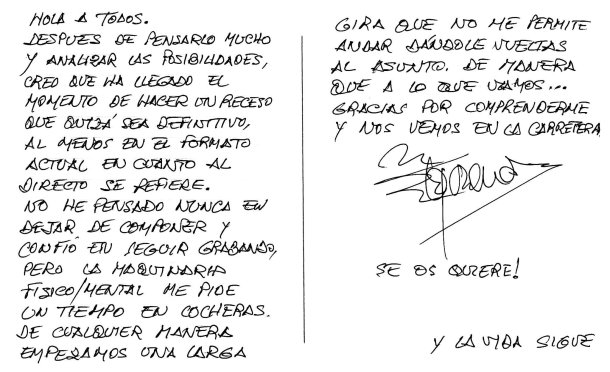 HOLA A TODOS.
DESPUES DE PENSARLO MUCHO
Y ANALIZAR LAS POSIBILIDADES,
CREO QUE HA LLEGADO EL
MOMENTO DE HACER UN RECESO
QUE QUIZÁ SEA DEFINITIVO,
AL MENOS EN EL FORMATO
ACTUAL EN CUANTO AL
DIRECTO SE REFIERE.
NO HE PENSADO NUNCA EN
DEJAR DE COMPONER Y
CONFÍO EN SEGUIR GRABANDO,
PERO LA MAQUINARIA
FISICO/MENTAL ME PIDE
UN TIEMPO EN COCHERAS.
DE CUALQUIER MANERA
EMPEZAMOS UNA LARGA
GIRA QUE NO ME PERMITE
ANDAR DÁNDOLE VUELTAS
AL ASUNTO. DE MANERA
QUE A LO QUE VAMOS...
GRACIAS POR COMPRENDERME
Y NOS VEMOS EN LA CARRETERA
SE OS QUIERE!
Y LA VIDA SIGUE